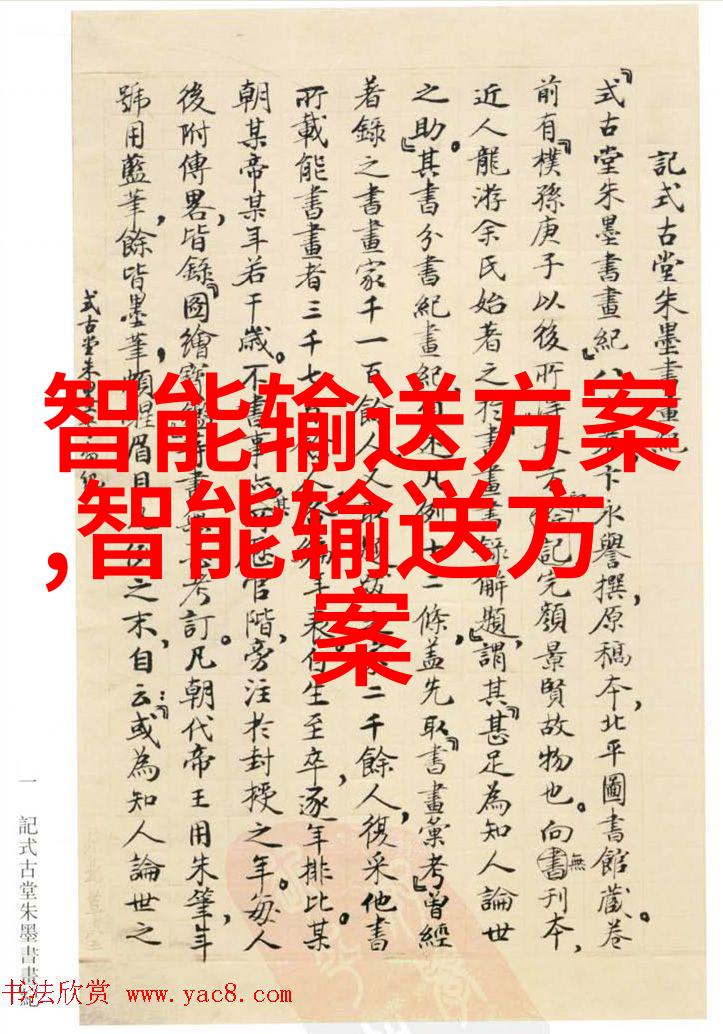 記式古堂朱墨書畫紀
『式古堂朱墨書畫紀』八卞永譽撰,原稿本,北平圖書館藏。卷
前有『樸孫庚子以後所得』記完顏景賢故物也。向無刊本,
近人龍游余氏始著之於書畫書錄解題,謂其『甚足為知人論世
之助』。其書分書紀畫紀凡例十二條,蓋先取『書畫彙考』曾經
著錄之書畫家千一百餘人,又二千餘人,復采他書
所載能書畫者三千七人年表自生至卒,逐年排比。某
朝某帝某年若干歲。不書事其官階,旁注於封授之年。每人
後附傳畧,皆錄『圖繪考訂。凡朝代帝王用朱筆,年
號用藍筆,餘皆墨筆,頗醒眉目之末,自云:『或為知人論世之
式古堂朱
一
記式古堂朱墨書畫紀
智能输送方案
,智能输送方
案
书法欣赏 www.yac8.com